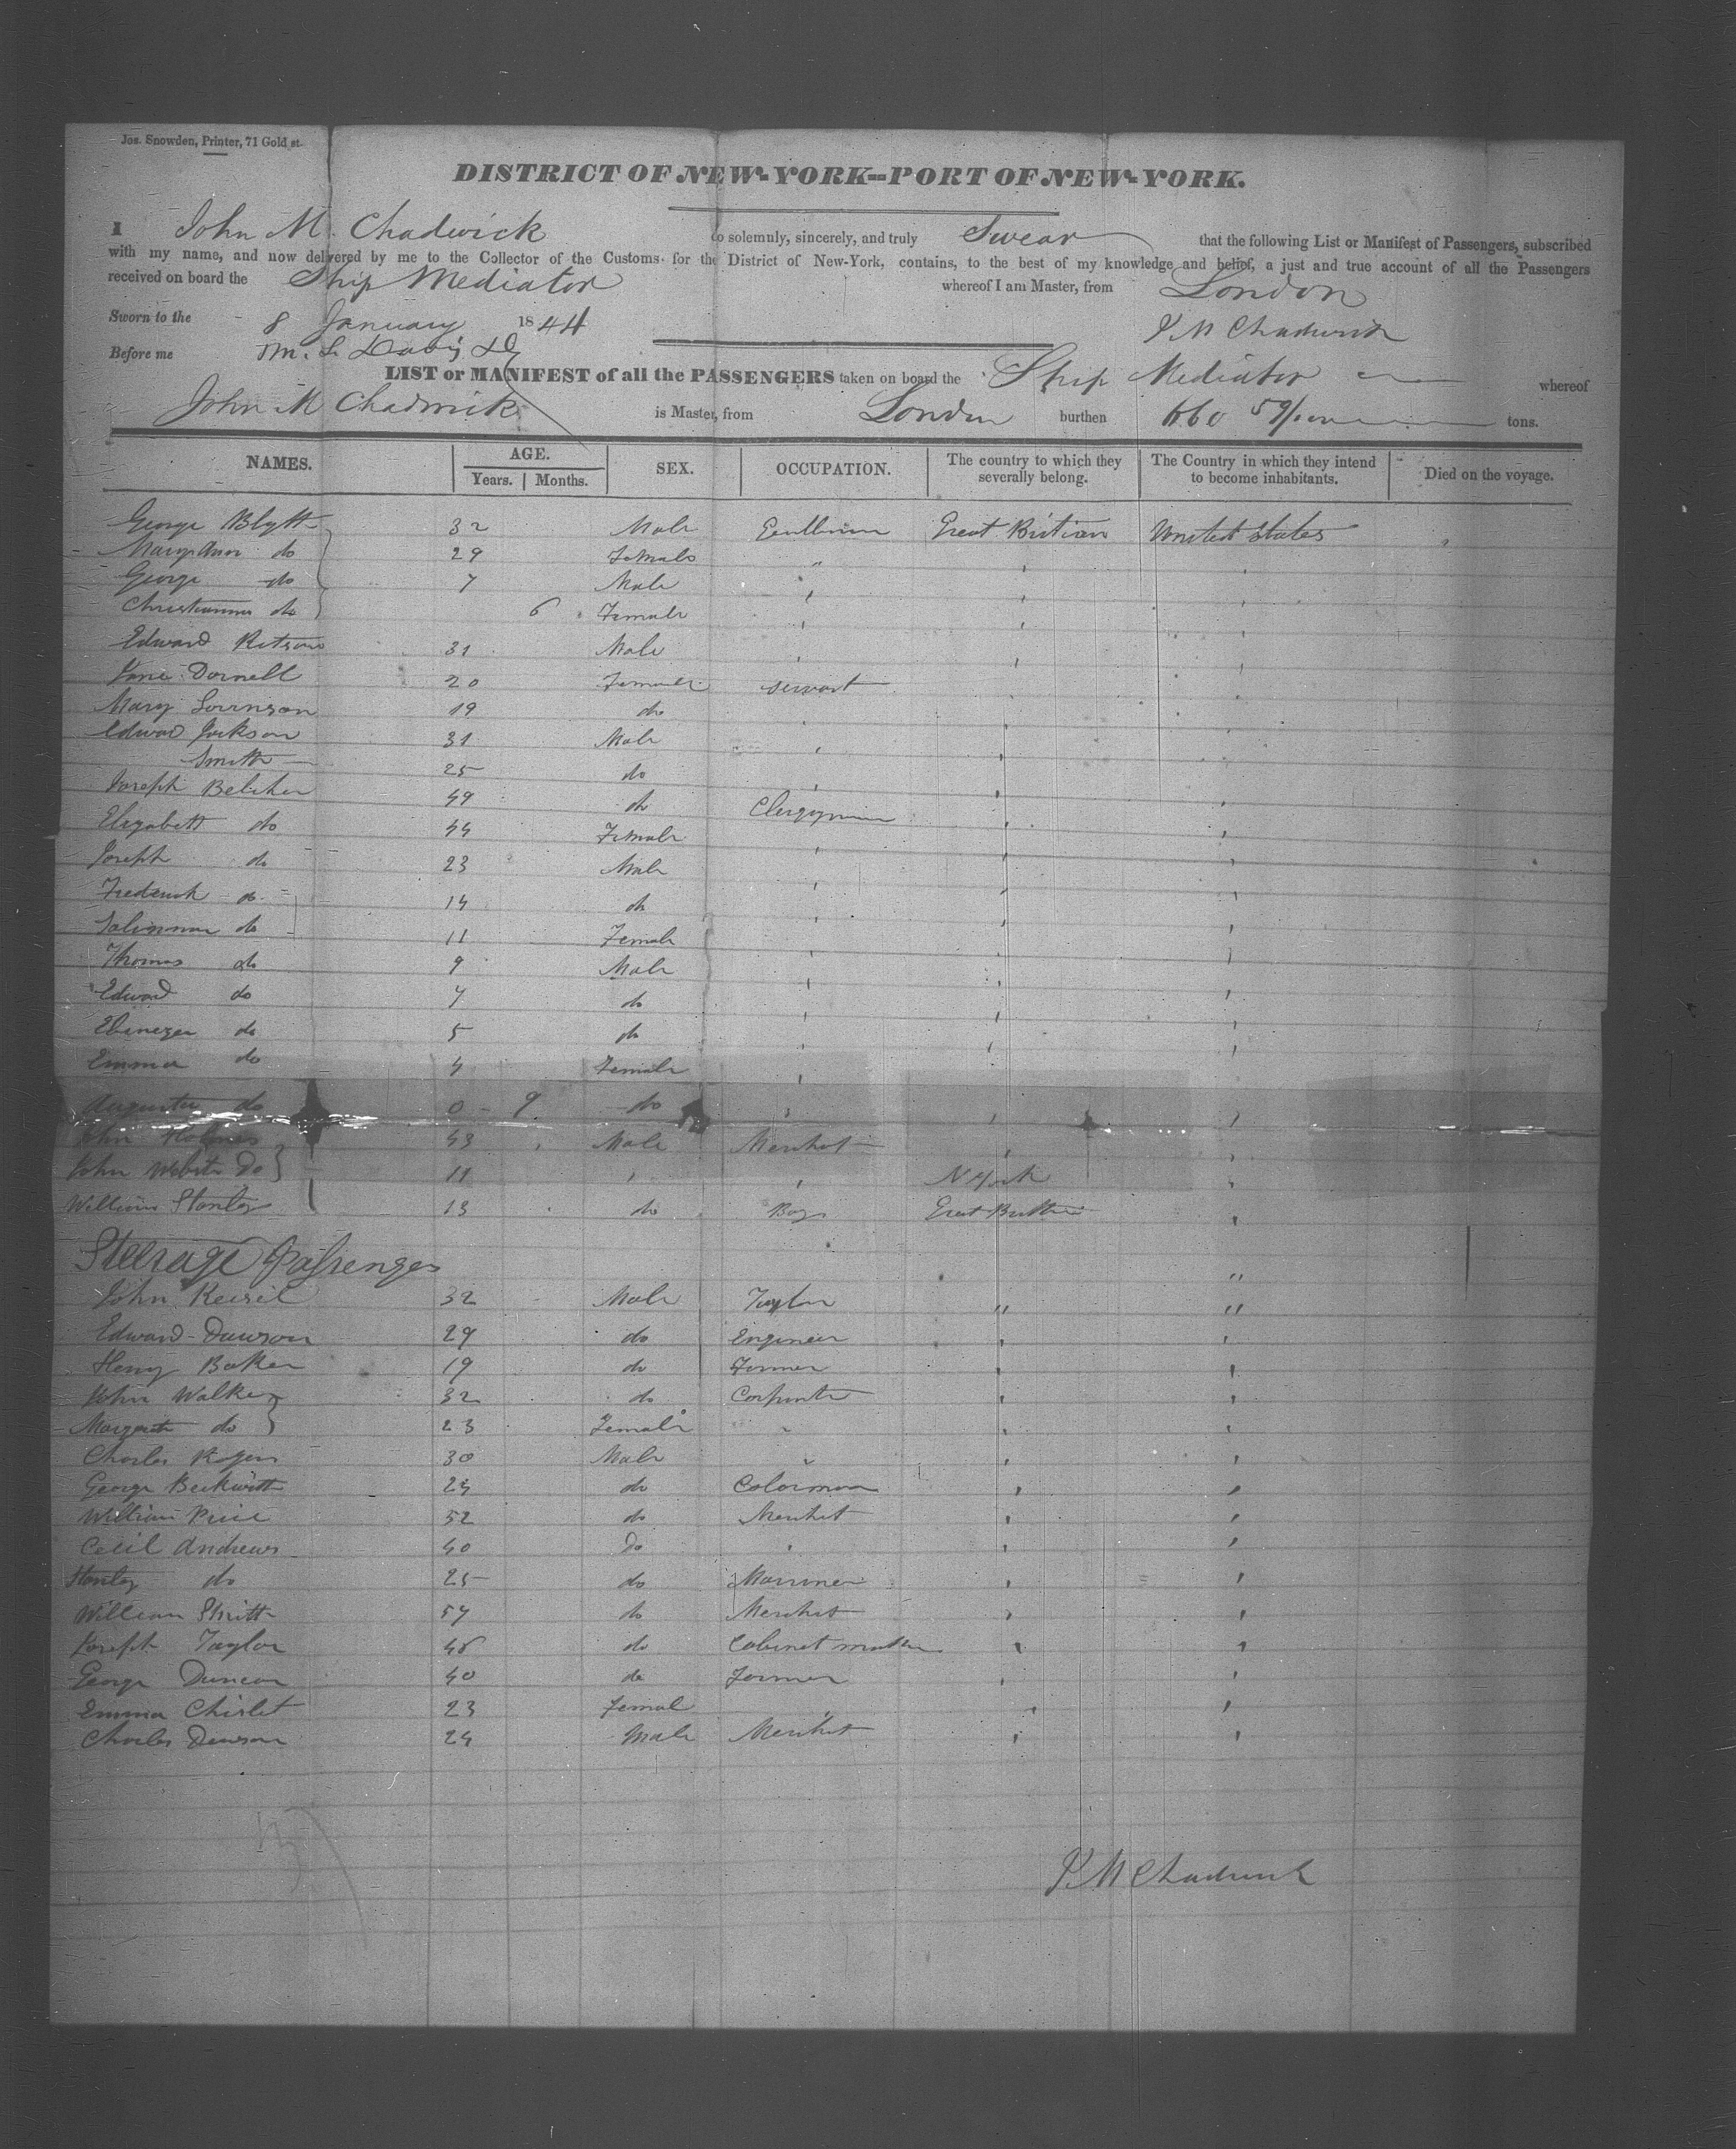 Jos. Snowden, Printer, 71 Gold st.
DISTRICT OF NEW-YORK--PORT OF NEW-YORK.
I John M. Chadwick do solemnly, sincerely, and truly Swear that the following List or Manifest of Passengers, subscribed
with my name, and now delivered by me to the Collector of the Customs for the District of New-York, contains, to the best of my knowledge and belief, a just and true account of all the Passengers
received on board the Ship Mediator whereof I am Master, from London
Sworn to the 8 January 1844 J M Chadwick
Before me
LIST or MANIFEST of all the PASSENGERS taken on board the Ship Mediator whereof
John M Chadwick is Master, from London burthen 660 tons.
NAMES. AGE. Years. Months. SEX. OCCUPATION. The country to which they severally belong. The Country in which they intend to become inhabitants. Died on the voyage.
George Blyth 32 Male Great Britian United States
Mary Ann do 29 Female "
George do 7 Male
do 6 Female
Edward 31 Male
Jane Darnell 20 Female servant
Mary 19 do
Edward Jackson 31 Male
Smith 25 do
Joseph Belcher 49 do Clergyman
Elizabeth do 44 Female
Joseph do 23 Male
Frederick do 14 do
do 11 Female
Thomas do 9 Male
Edward do 7 do
Ebenezer do 5 do
Emma do 4 Female
Augusta do 0 - 9 do
John Holmes 43 Male Merchat
John Webster Do 11 N York
William Stanley 13 do Boy Great Brittain
Steerage Passenges "
John 32 Male Taylor " "
Edward Dawson 29 do Engineer
Henry Baker 19 do Farmer
John Walker 32 do Carpenter
Margaret do 23 Female "
Charles Rogers 30 Male "
George Beckwith 24 do Colorman
William Price 52 do Merchat
Cecil Andrews 40 Do
Stanley do 25 do Marriner
William 54 do Merchat
Joseph Taylor 46 do Cabinet maker
George Duncan 40 do Farmer
Emma Chislet 23 Female "
Charles Dawson 24 Male Merchat
J. M Chadwick